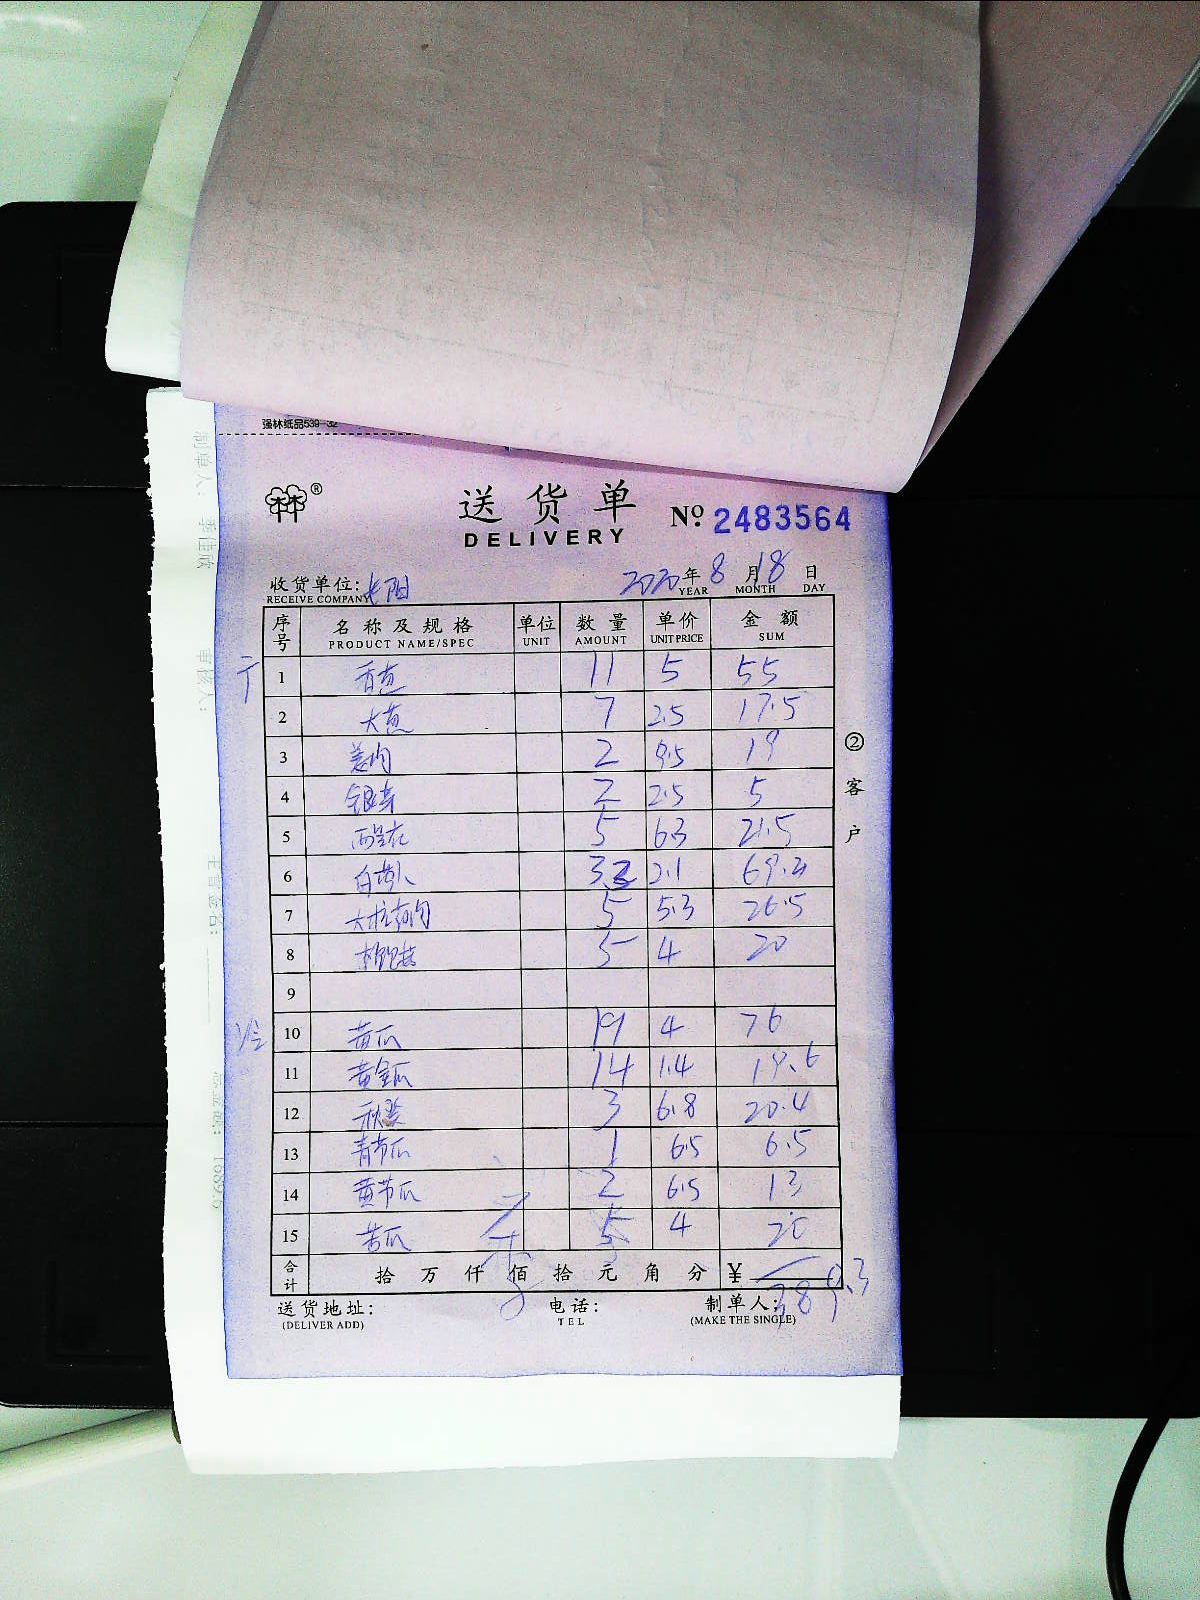 强林纸品539-32
®
送货单
DELIVERY
№ 2483564
收货单位: 长阳
RECEIVE COMPANY
2020 年 8 月 18 日
YEAR MONTH DAY
序号 名称及规格 单位 数量 单价 金额
PRODUCT NAME/SPEC UNIT AMOUNT UNIT PRICE SUM
1 香芭 11 5 55
2 大芭 7 2.5 17.5
3 姜肉 2 9.5 19
4 银芽 2 2.5 5
5 西兰花 5 6.3 21.5
6 白萝卜 32 2.1 69.2
7 5 5.3 26.5
8 5 4 20
9
10 黄瓜 19 4 76
11 黄金瓜 14 1.4 19.6
12 秋葵 3 6.8 20.4
13 青节瓜 1 6.5 6.5
14 黄节瓜 2 6.5 13
15 苦瓜 5 4 20
合计 拾 万 仟 佰 拾 元 角 分 ¥ 389.3
送货地址: 电话: 制单人:
(DELIVER ADD) TEL (MAKE THE SINGLE)
② 客户
制单人:
审核人:
总金额: 1689.6